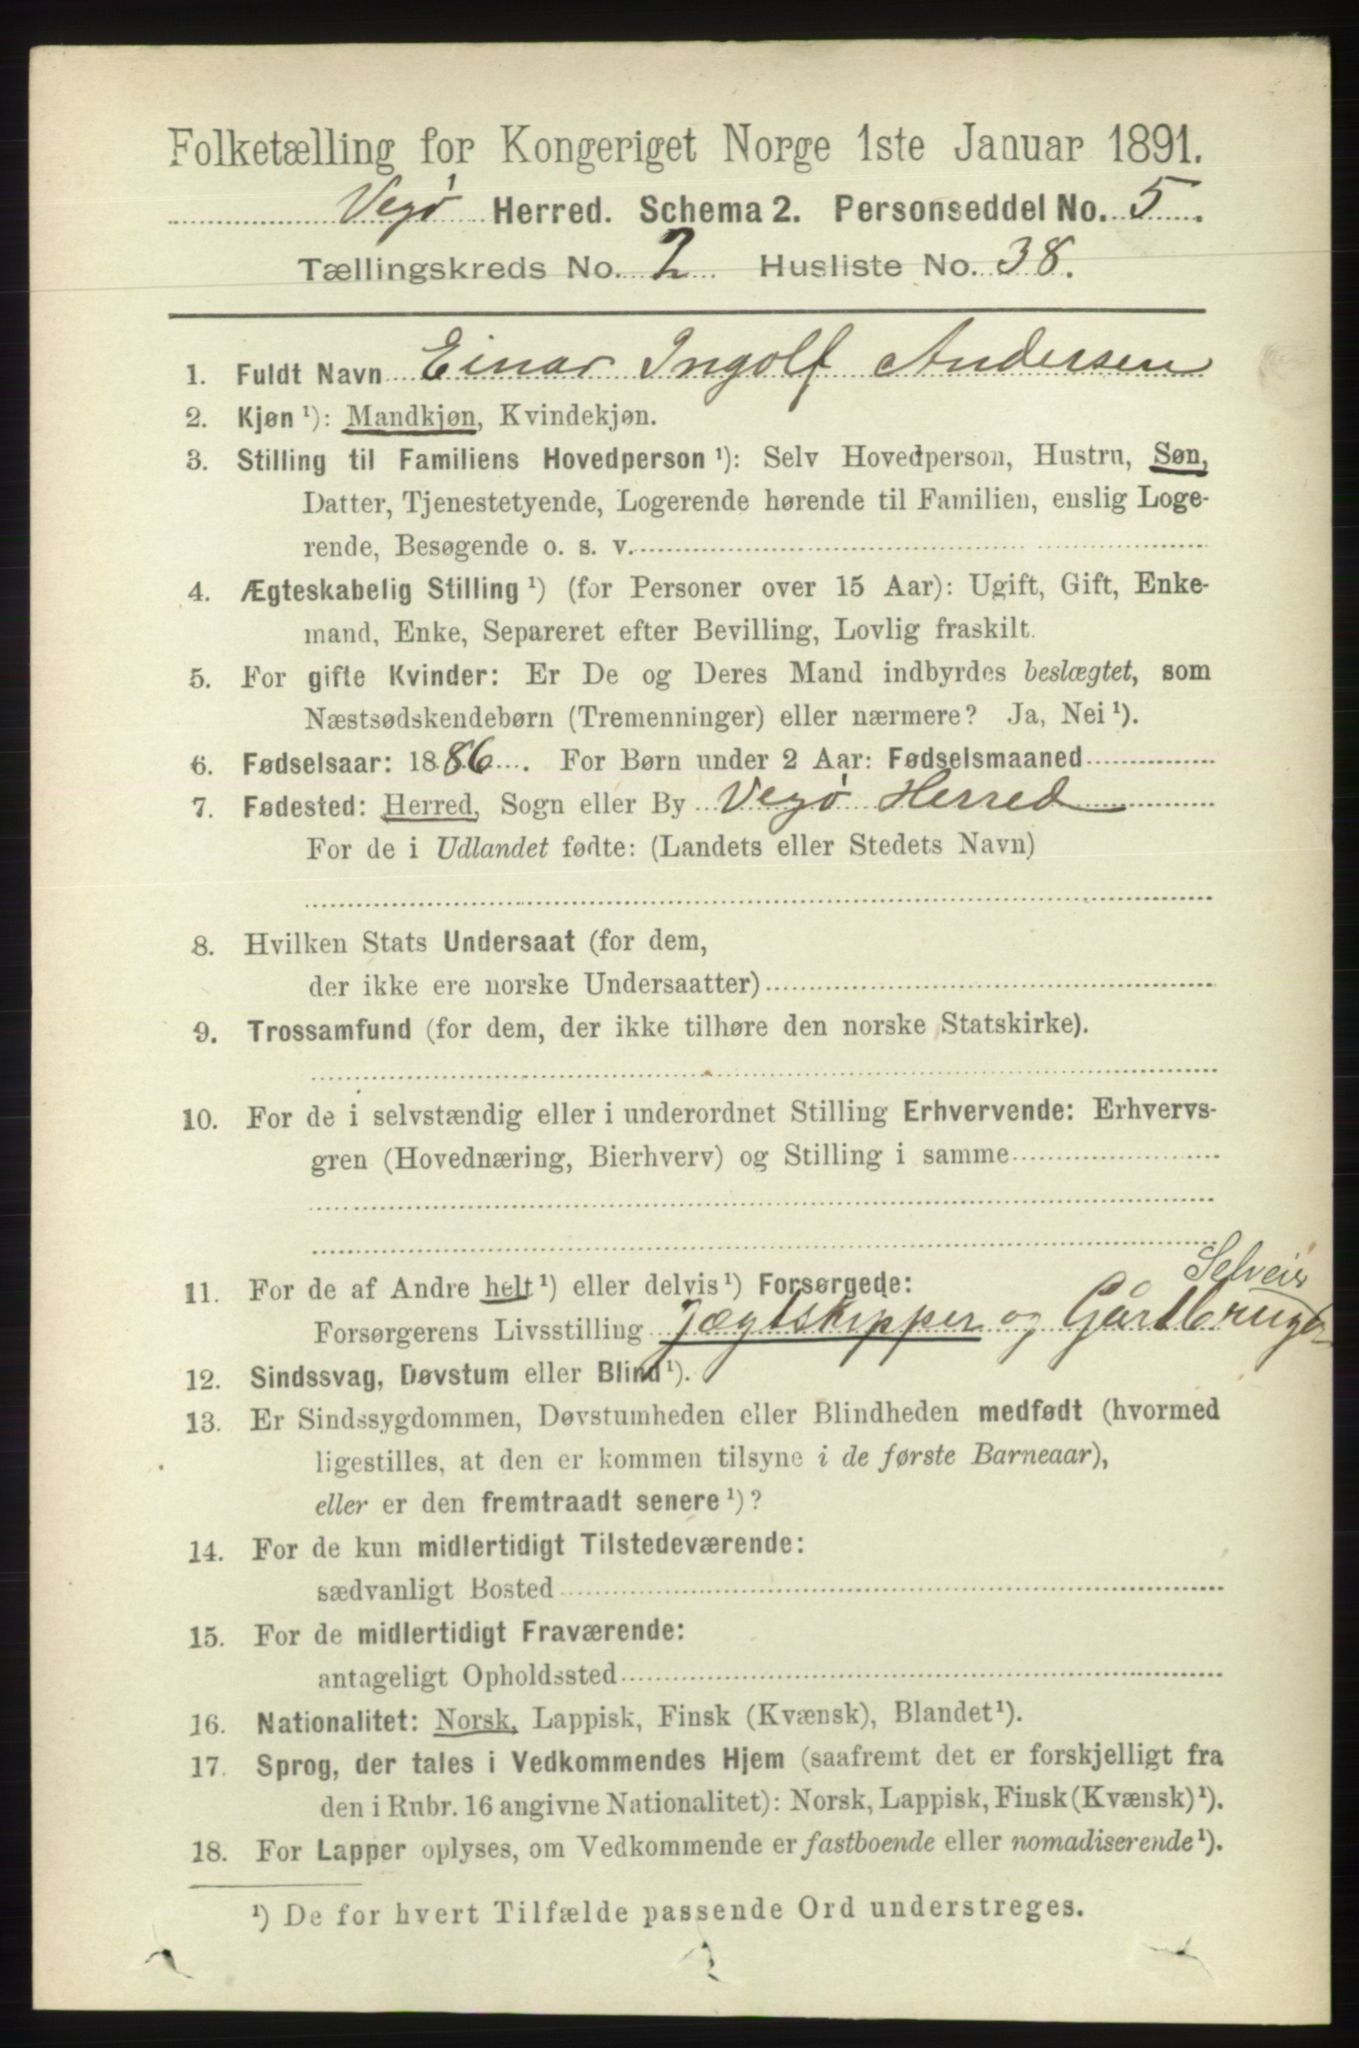 Folketælling for Kongeriget Norge 1ste Januar 1891.
Vegø Herred. Schema 2. Personseddel No. 5.
Tællingskreds No. 2 Husliste No. 38.
1. Fuldt Navn Einar Ingolf Andersen
2. Kjøn ¹): Mandkjøn, Kvindekjøn.
3. Stilling til Familiens Hovedperson ¹): Selv Hovedperson, Hustru, Søn,
Datter, Tjenestetyende, Logerende hørende til Familien, enslig Loge-
rende, Besøgende o. s. v.
4. Ægteskabelig Stilling ¹) (for Personer over 15 Aar): Ugift, Gift, Enke-
mand, Enke, Separeret efter Bevilling, Lovlig fraskilt.
5. For gifte Kvinder: Er De og Deres Mand indbyrdes beslægtet, som
Næstsødskendebørn (Tremenninger) eller nærmere? Ja, Nei ¹).
6. Fødselsaar: 1886. For Børn under 2 Aar: Fødselsmaaned
7. Fødested: Herred, Sogn eller By Vegø Herred
For de i Udlandet fødte: (Landets eller Stedets Navn)
8. Hvilken Stats Undersaat (for dem,
der ikke ere norske Undersaatter)
9. Trossamfund (for dem, der ikke tilhøre den norske Statskirke).
10. For de i selvstændig eller i underordnet Stilling Erhvervende: Erhvervs-
gren (Hovednæring, Bierhverv) og Stilling i samme
Selveier
11. For de af Andre helt ¹) eller delvis ¹) Forsørgede:
Forsørgerens Livsstilling Jægtskipper og Gårdbruger
12. Sindssvag, Døvstum eller Blind ¹).
13. Er Sindssygdommen, Døvstumheden eller Blindheden medfødt (hvormed
ligestilles, at den er kommen tilsyne i de første Barneaar),
eller er den fremtraadt senere ¹)?
14. For de kun midlertidigt Tilstedeværende:
sædvanligt Bosted
15. For de midlertidigt Fraværende:
antageligt Opholdssted
16. Nationalitet: Norsk, Lappisk, Finsk (Kvænsk), Blandet ¹).
17. Sprog, der tales i Vedkommendes Hjem (saafremt det er forskjelligt fra
den i Rubr. 16 angivne Nationalitet): Norsk, Lappisk, Finsk (Kvænsk) ¹).
18. For Lapper oplyses, om Vedkommende er fastboende eller nomadiserende ¹).
¹) De for hvert Tilfælde passende Ord understreges.